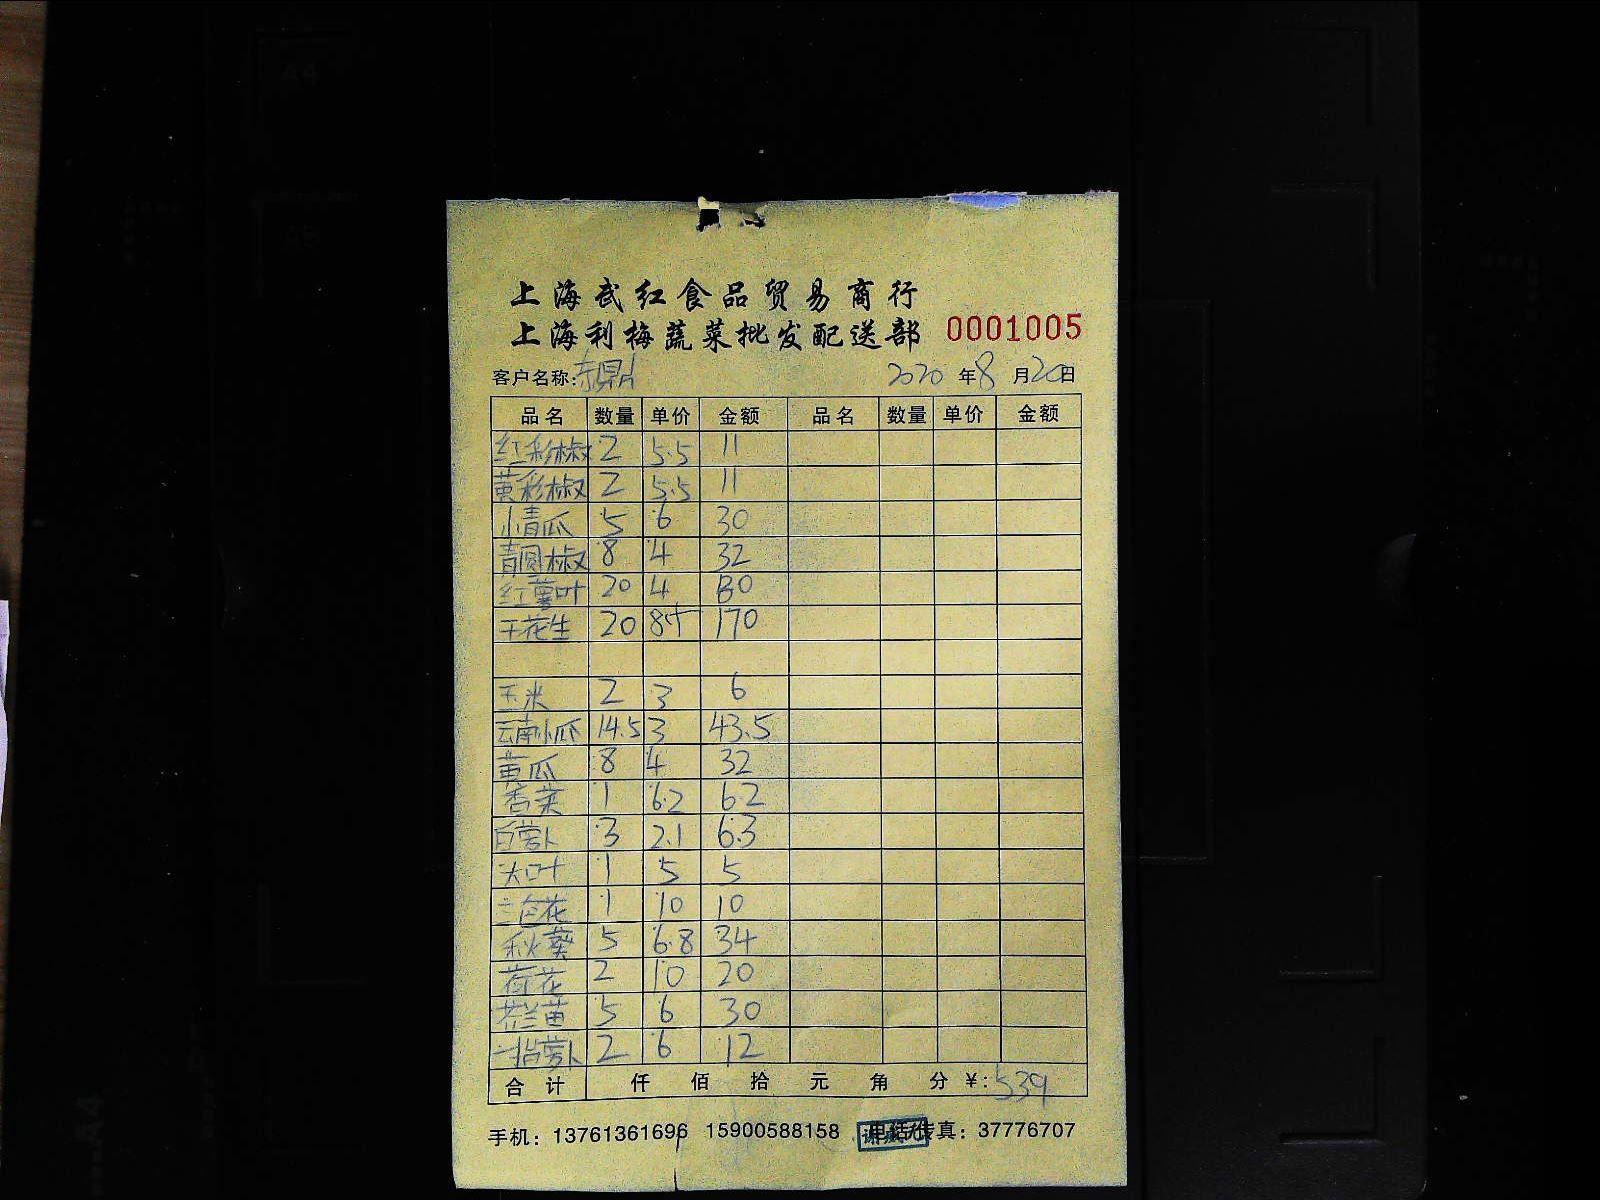 上海武红食品贸易商行
上海利梅蔬菜批发配送部 0001005
客户名称: 鼎 2020年8月20日
品名 数量 单价 金额 品名 数量 单价 金额
红彩椒 2 5.5 11
黄彩椒 2 5.5 11
小青瓜 5 6 30
青圆椒 8 4 32
红薯叶 20 4 80
干花生 20 85 170
玉米 2 3 6
云南小瓜 14.5 3 43.5
黄瓜 8 4 32
香菜 1 6.2 6.2
白萝卜 3 2.1 6.3
大叶 1 5 5
三色花 1 10 10
秋葵 5 6.8 34
荷花 2 10 20
芥兰苗 5 6 30
指萝卜 2 6 12
合计 仟 佰 拾 元 角 分 ¥: 539
手机: 13761361696 15900588158 电话传真: 37776707